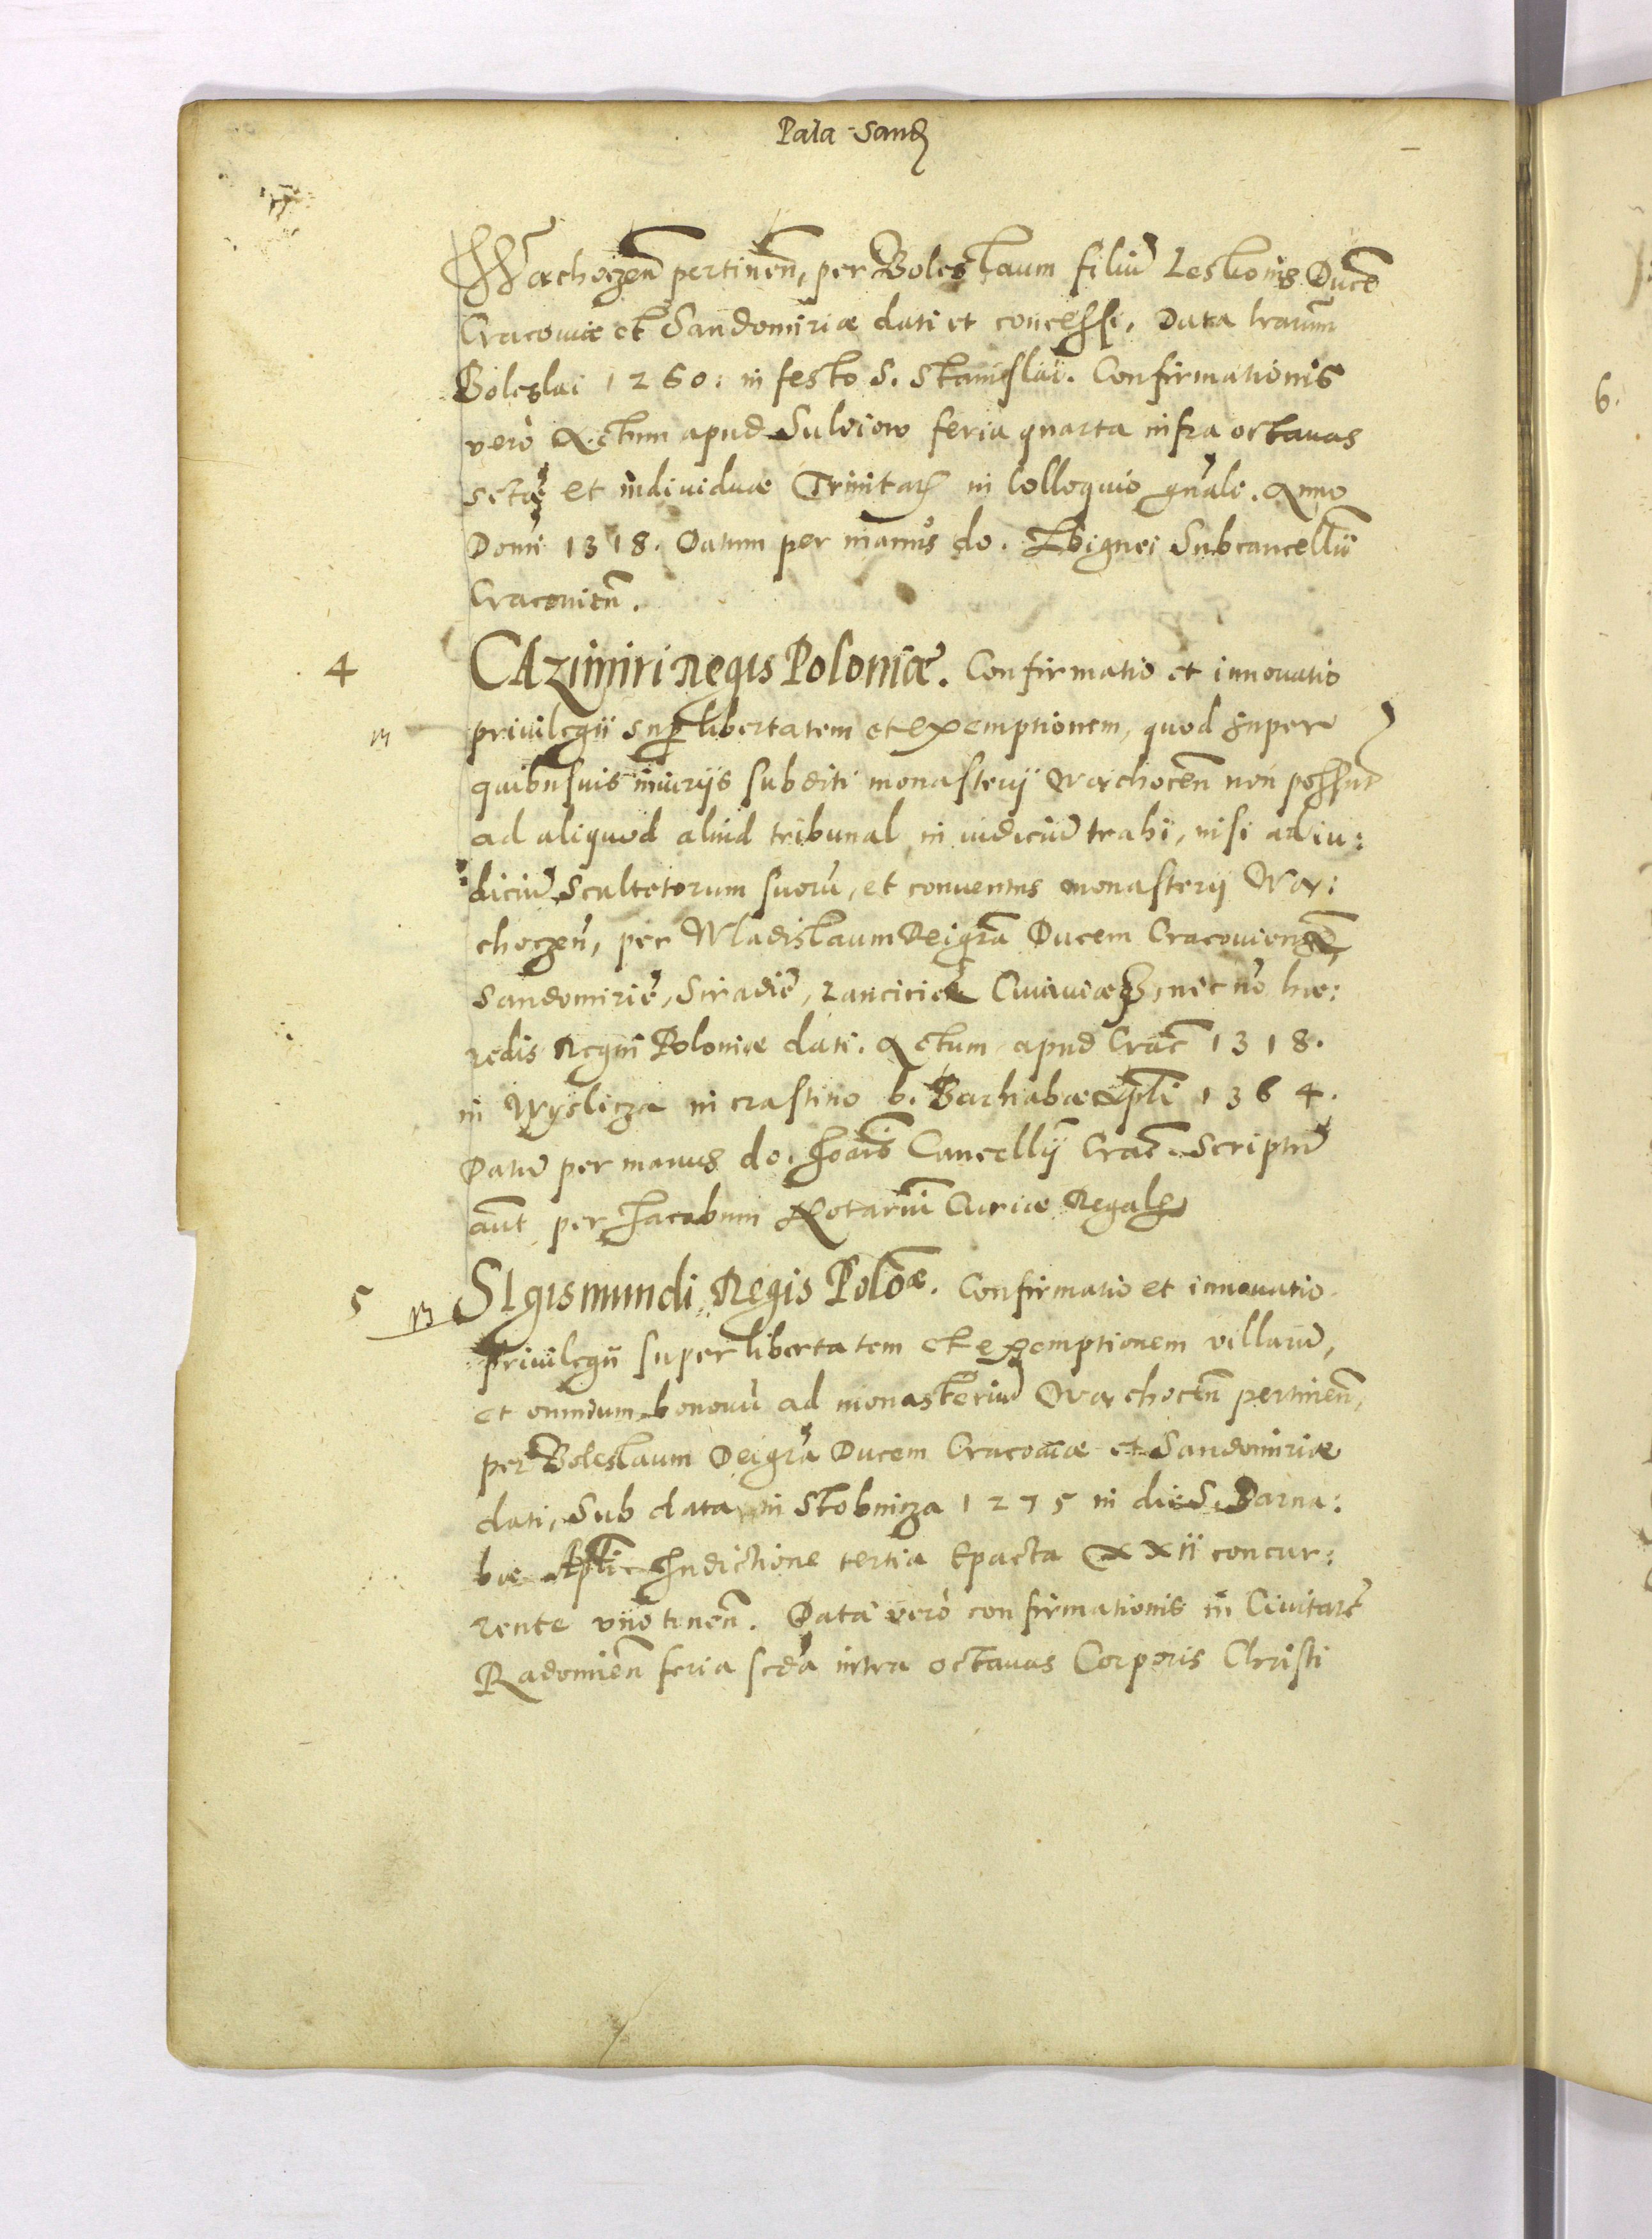 Pala Sand
Wachoczen̄ pertinen̄, per Boleslaum filiū Leskonis Ducē
Cracouiæ et Sandomiriæ dati et concessi. Data lrarum̄
Boleslai 1260. in festo S. Stanislai. Confirmationis
verò Actum apud Suleiow feria quarta infra octauas
sctæ et indiuiduæ Trinitatꝭ in Colloquio gn̄ali. Anno
Domi 1318. Datum per manus do. Zbignei Subcancellū
Cracouien̄.
4
CAzimiri Regis Poloniæ. Confirmatio et innouatio
priuilegii sup libertatem et exemptionem, quod super
quibusuis iniurijs subditi monasterij Wachocen̄ non possūt
ad aliquod aliud tribunal in iudiciū trahi, nisi ad iu:
diciū Scultetorum suorū, et conuentus monasterij Wa:
choczen̄, per Wladislaum Dei gr̄a Ducem Cracouiens̄,
Sandomiriē, Siradiē, Lanciciē, Cuiauiæqꝫ, nec nō hæ:
redis Regni Poloniæ dati. Actum apud Crac̄ 1318.
in Wyslicza in crastino b. Barnabæ Apl̄i 1364.
Datū per manus do. Joān̄is Cancellij Crac̄. Scriptū
aūt per Jacobum Notariū Curiæ Regalꝭ
5
SIgismundi Regis Polōæ. Confirmatio et innouatio
priuilegii super libertatem et exemptionem villarū,
et omnium bonorū ad monasteriū Wachocen̄ pertinen̄,
per Boleslaum Dei gr̄a Ducem Cracouiæ et Sandomiriæ
dati, Sub data in Stobnicza 1275 in die S. Barna:
bæ Apl̄i Indictione tertia Epacta XXII concur:
rente vno tenen̄. Data verò confirmationis in Ciuitatē
Radomien̄ feria scd̄a intra octauas Corporis Christi
6.